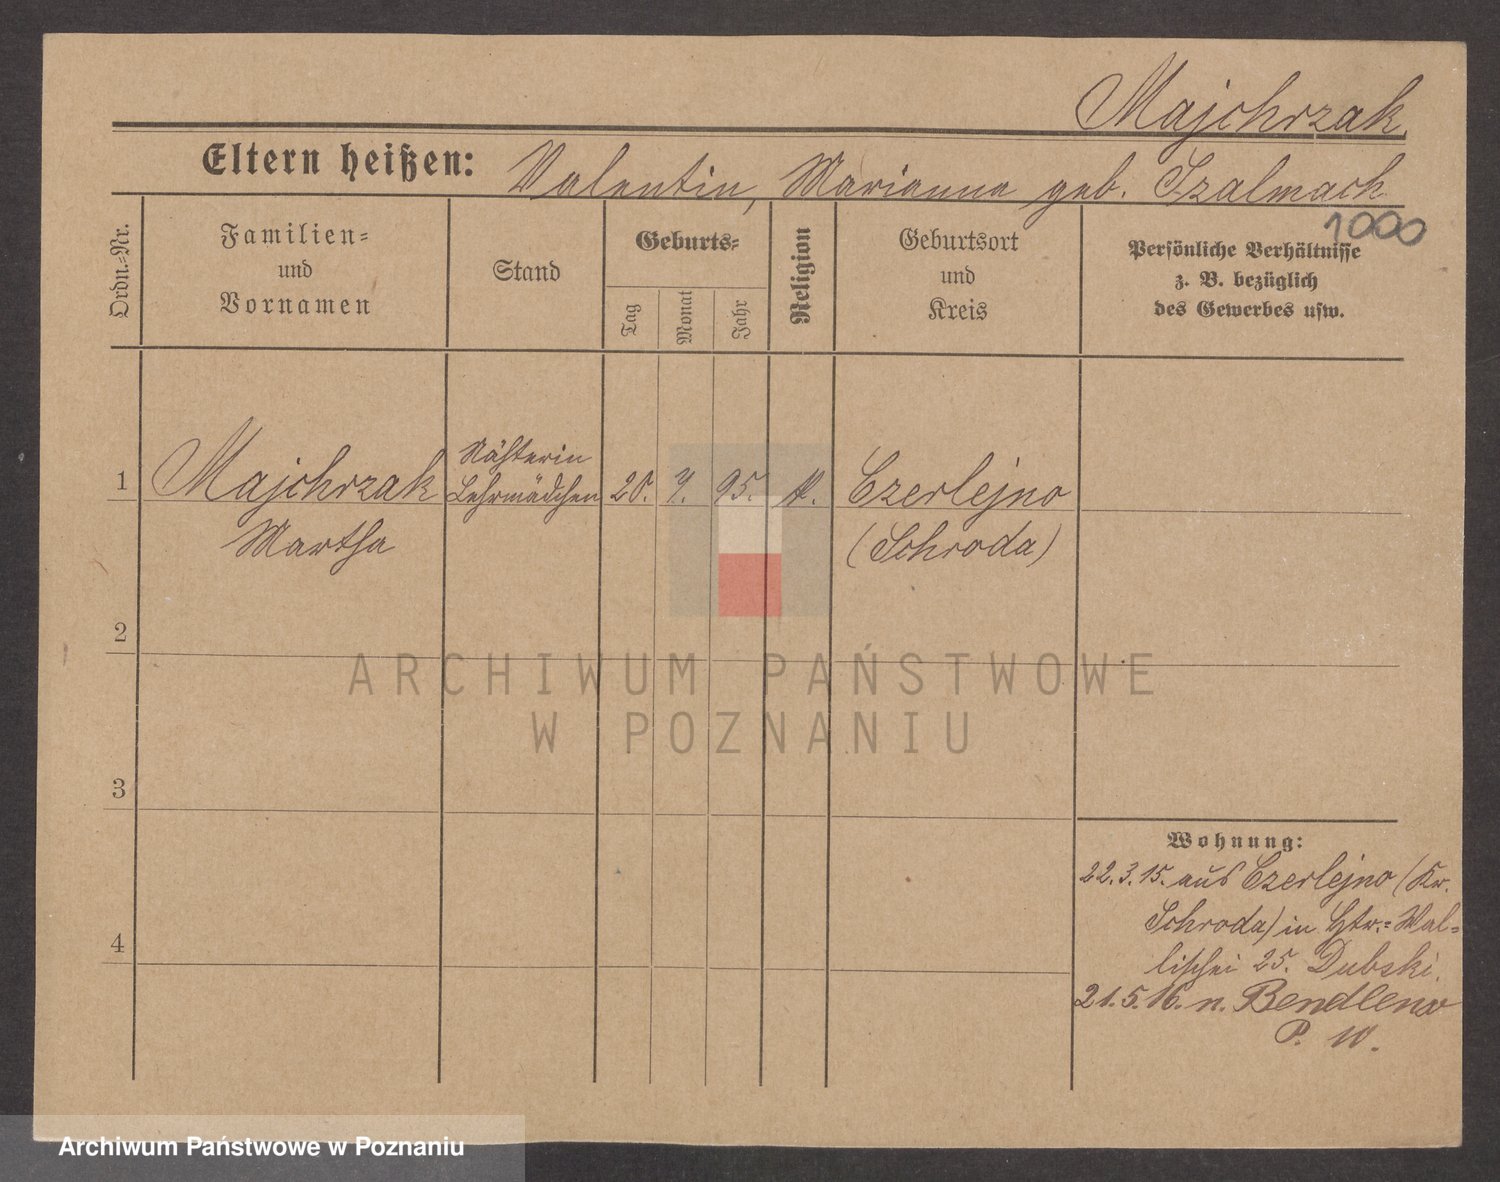 Majchrzak
Eltern heißen: Valentin, Marianna geb. Szalmach
1000
Ordn.=Nr.
Familien=
und
Vornamen
Stand
Geburts=
Tag
Monat
Jahr
Religion
Geburtsort
und
Kreis
Persönliche Verhältnisse
z. B. bezüglich
des Gewerbes usw.
1
Majchrzak
Martha
Nähterin
Lehrmädchen
20. 7. 95. k.
Czerlejno
(Schroda)
2
3
4
Wohnung:
22.3.15. aus Czerlejno (Kr.
Schroda) in Htr.= Wal=
lischei 25. Dubski.
21.5.16. n. Bendlewo
P. W.
ARCHIWUM PAŃSTWOWE
W POZNANIU
Archiwum Państwowe w Poznaniu